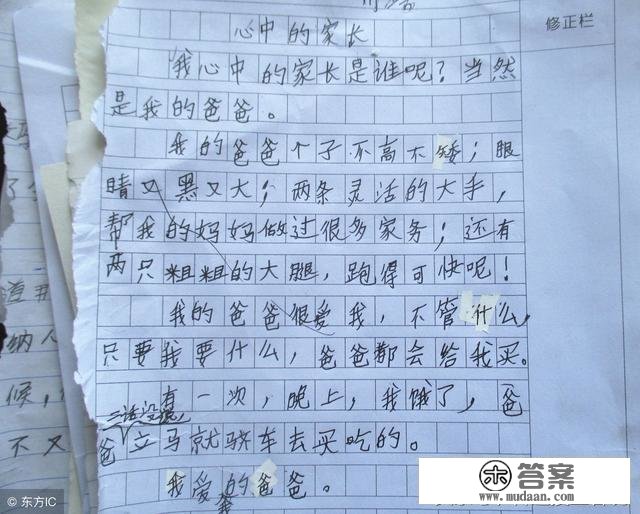 心中的家长
修正栏
我心中的家长是谁呢？当然
是我的爸爸。
我的爸爸个子不高不矮；眼
睛又黑又大；两条灵活的大手，
帮我的妈妈做过很多家务；还有
两只粗粗的大腿，跑得可快呢！
我的爸爸很爱我，不管什么，
只要我要什么，爸爸都会给我买。
有一次，晚上，我饿了，爸
二话没说，
爸立马就骄车去买吃的。
我爱的爸爸。
我
纳人
候，
不又
© 东方IC
答案
www.mudaan.com